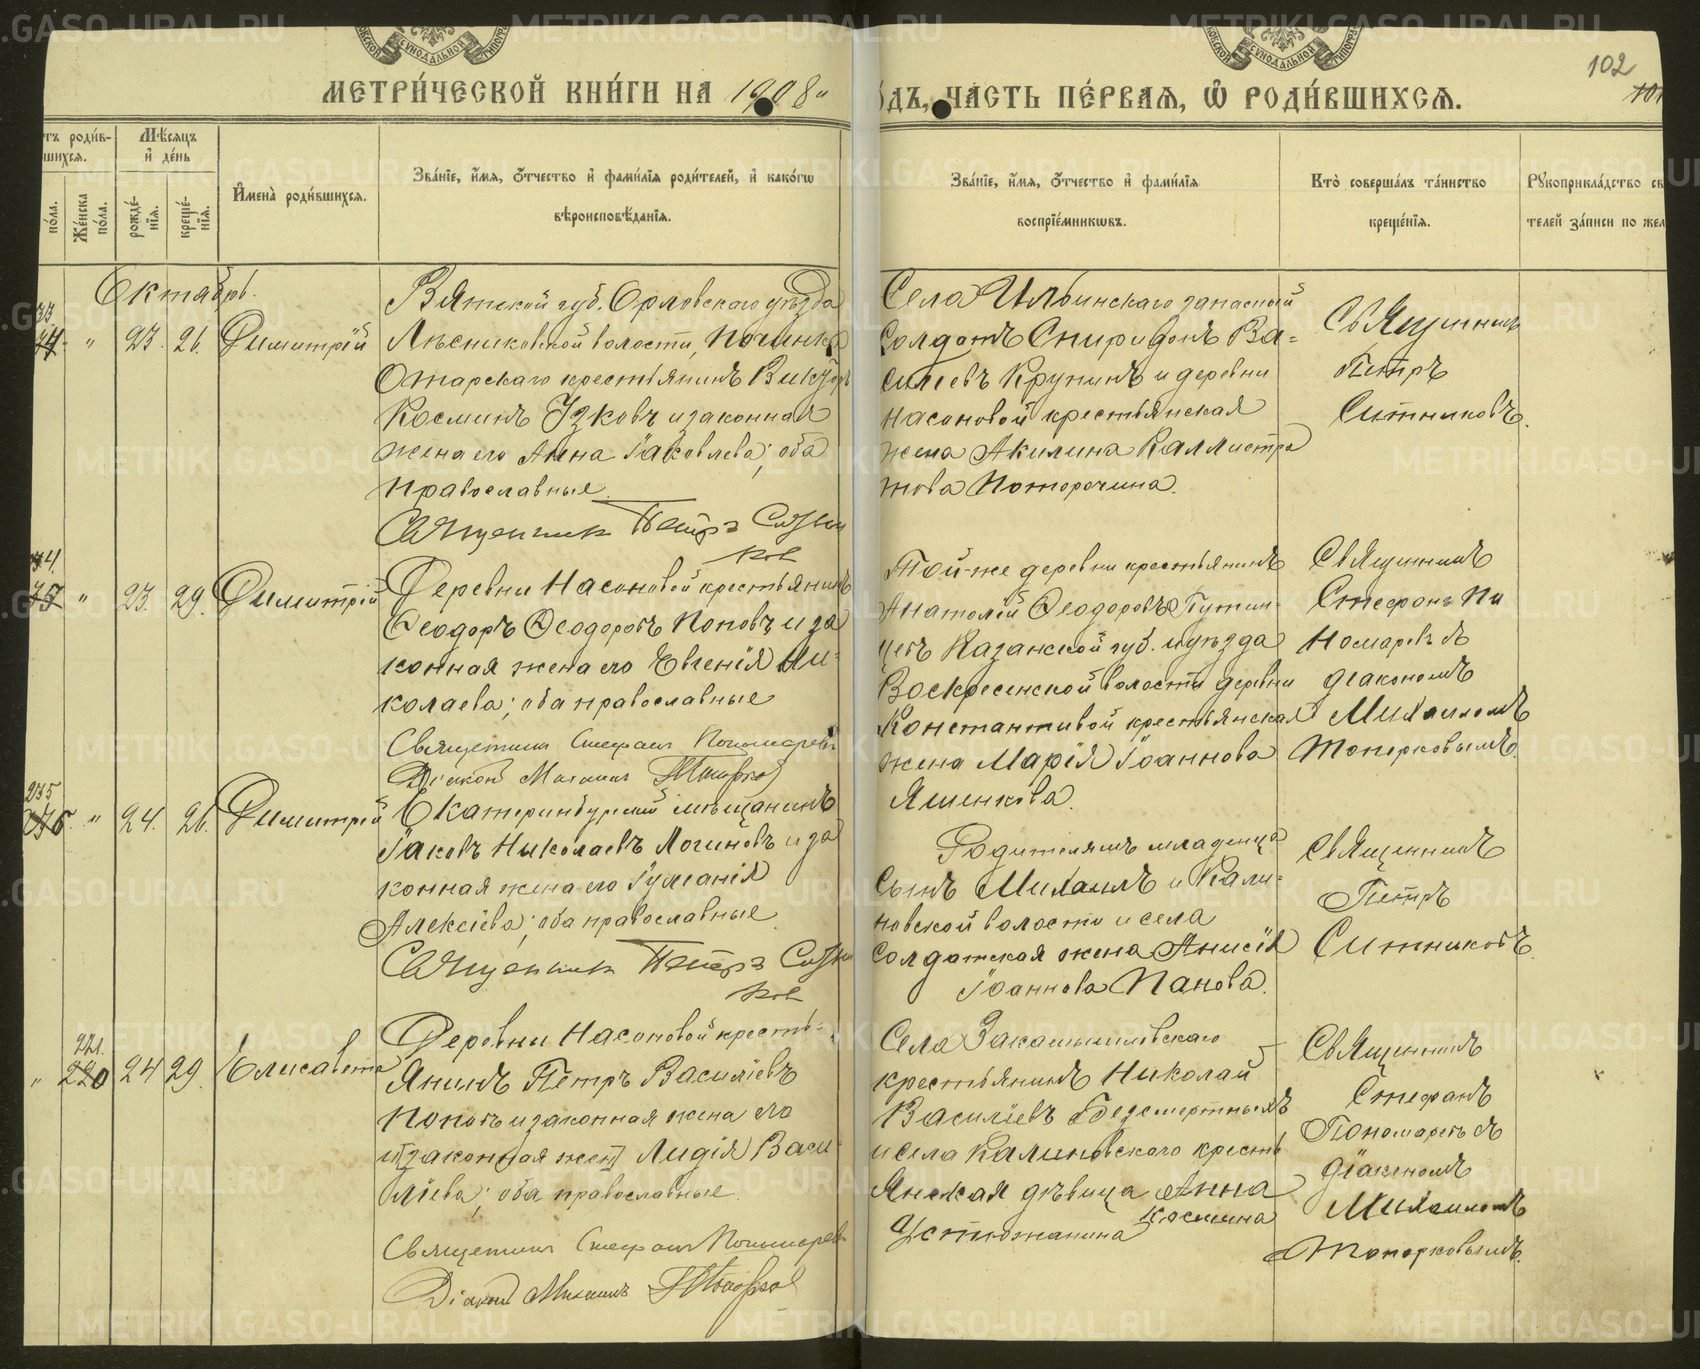 МЕТРИ́ЧЕСКОЙ КНИ́ГИ НА 1908
ДЪ, ЧА́СТЬ ПЕ́РВАѦ, Ѡ҆ РОДИ́ВШИХСѦ.
102
101
тъ роди́в-
шихсѧ.
Мѣ́сѧцъ
и҆ де́нь
по́ла.
Же́нска
по́ла.
рожде́-
нїѧ.
креще́-
нїѧ.
И҆мена̀ роди́вшихсѧ.
Зва́нїе, и҆́мѧ, ѻ҆́тчество и҆ фами́лїѧ роди́телей, и҆ како́гѡ
вѣроисповѣ́данїѧ.
Зва́нїе, и҆́мѧ, ѻ҆́тчество и҆ фами́лїѧ
воспрїе́мникѡвъ.
Кто̀ соверша́лъ та́инство
креще́нїѧ.
Рꙋкоприкла́дство св
телей за́писи по жел
Октябрь.
33
"
23.
26.
Димитрій
Вятской губ. Орловскаго уѣзда
Лѣсниковской волости, починка
Отарскаго крестьянинъ Викторъ
Косминъ Узковъ и законная
жена его Анна Іаковлева; оба
православные.
Священник Петръ Ситни
ков
Села Ильинскаго запасный
солдатъ Спиридонъ Ва=
сильевъ Крупинъ и деревни
Насоновой крестьянская
жена Акилина Каллистра
това Поторочина.
Священникъ
Петръ
Ситниковъ.
34.
"
23.
29.
Димитрій
Деревни Насоновой крестьянинъ
Ѳеодоръ Ѳеодоровъ Поповъ и за
конная жена его Евгенія Ни=
колаева; оба православные
Священник Стефан Пономарев
Діакон Михаил Топорков
Той-же деревни крестьянинъ
Анатолій Ѳеодоровъ Путин-
цевъ Казанской губ. и уѣзда
Воскресенской волости деревни
Константиновой крестьянская
жена Марія Іоаннова
Яшенкова.
Священникъ
Стефанъ По
номаревъ съ
діакономъ
Михаиломъ
Топорковымъ.
235
"
24.
26.
Димитрій
Екатеринбургскій мѣщанинъ
Іаковъ Николаевъ Логиновъ и за
конная жена его Іуліанія
Алексіева; оба православные.
Священник Петръ Ситни
ков
Родителямъ младенца
сынъ Михаилъ и Кали=
новской волости и села
солдатская жена Анисія
Іоаннова Панова.
Священникъ
Петръ
Ситниковъ.
"
221.
220
24
29.
Елисавета
Деревни Насоновой кресть=
янинъ Петръ Василіевъ
Поповъ и законная жена его
и [законная жена] Лидія Васи=
ліева; оба православные.
Священник Стефан Пономарев
Діакон Михаилъ Топорков
Села Закамышловскаго
крестьянинъ Николай
Василіевъ Безсмертныхъ
и села Калиновского кресть
янская дѣвица Анна
Космина
Устюжанина
Священникъ
Стефанъ
Пономаревъ съ
діакономъ
Михаиломъ
Топорковымъ.
METRIKI.GASO-URAL.RU